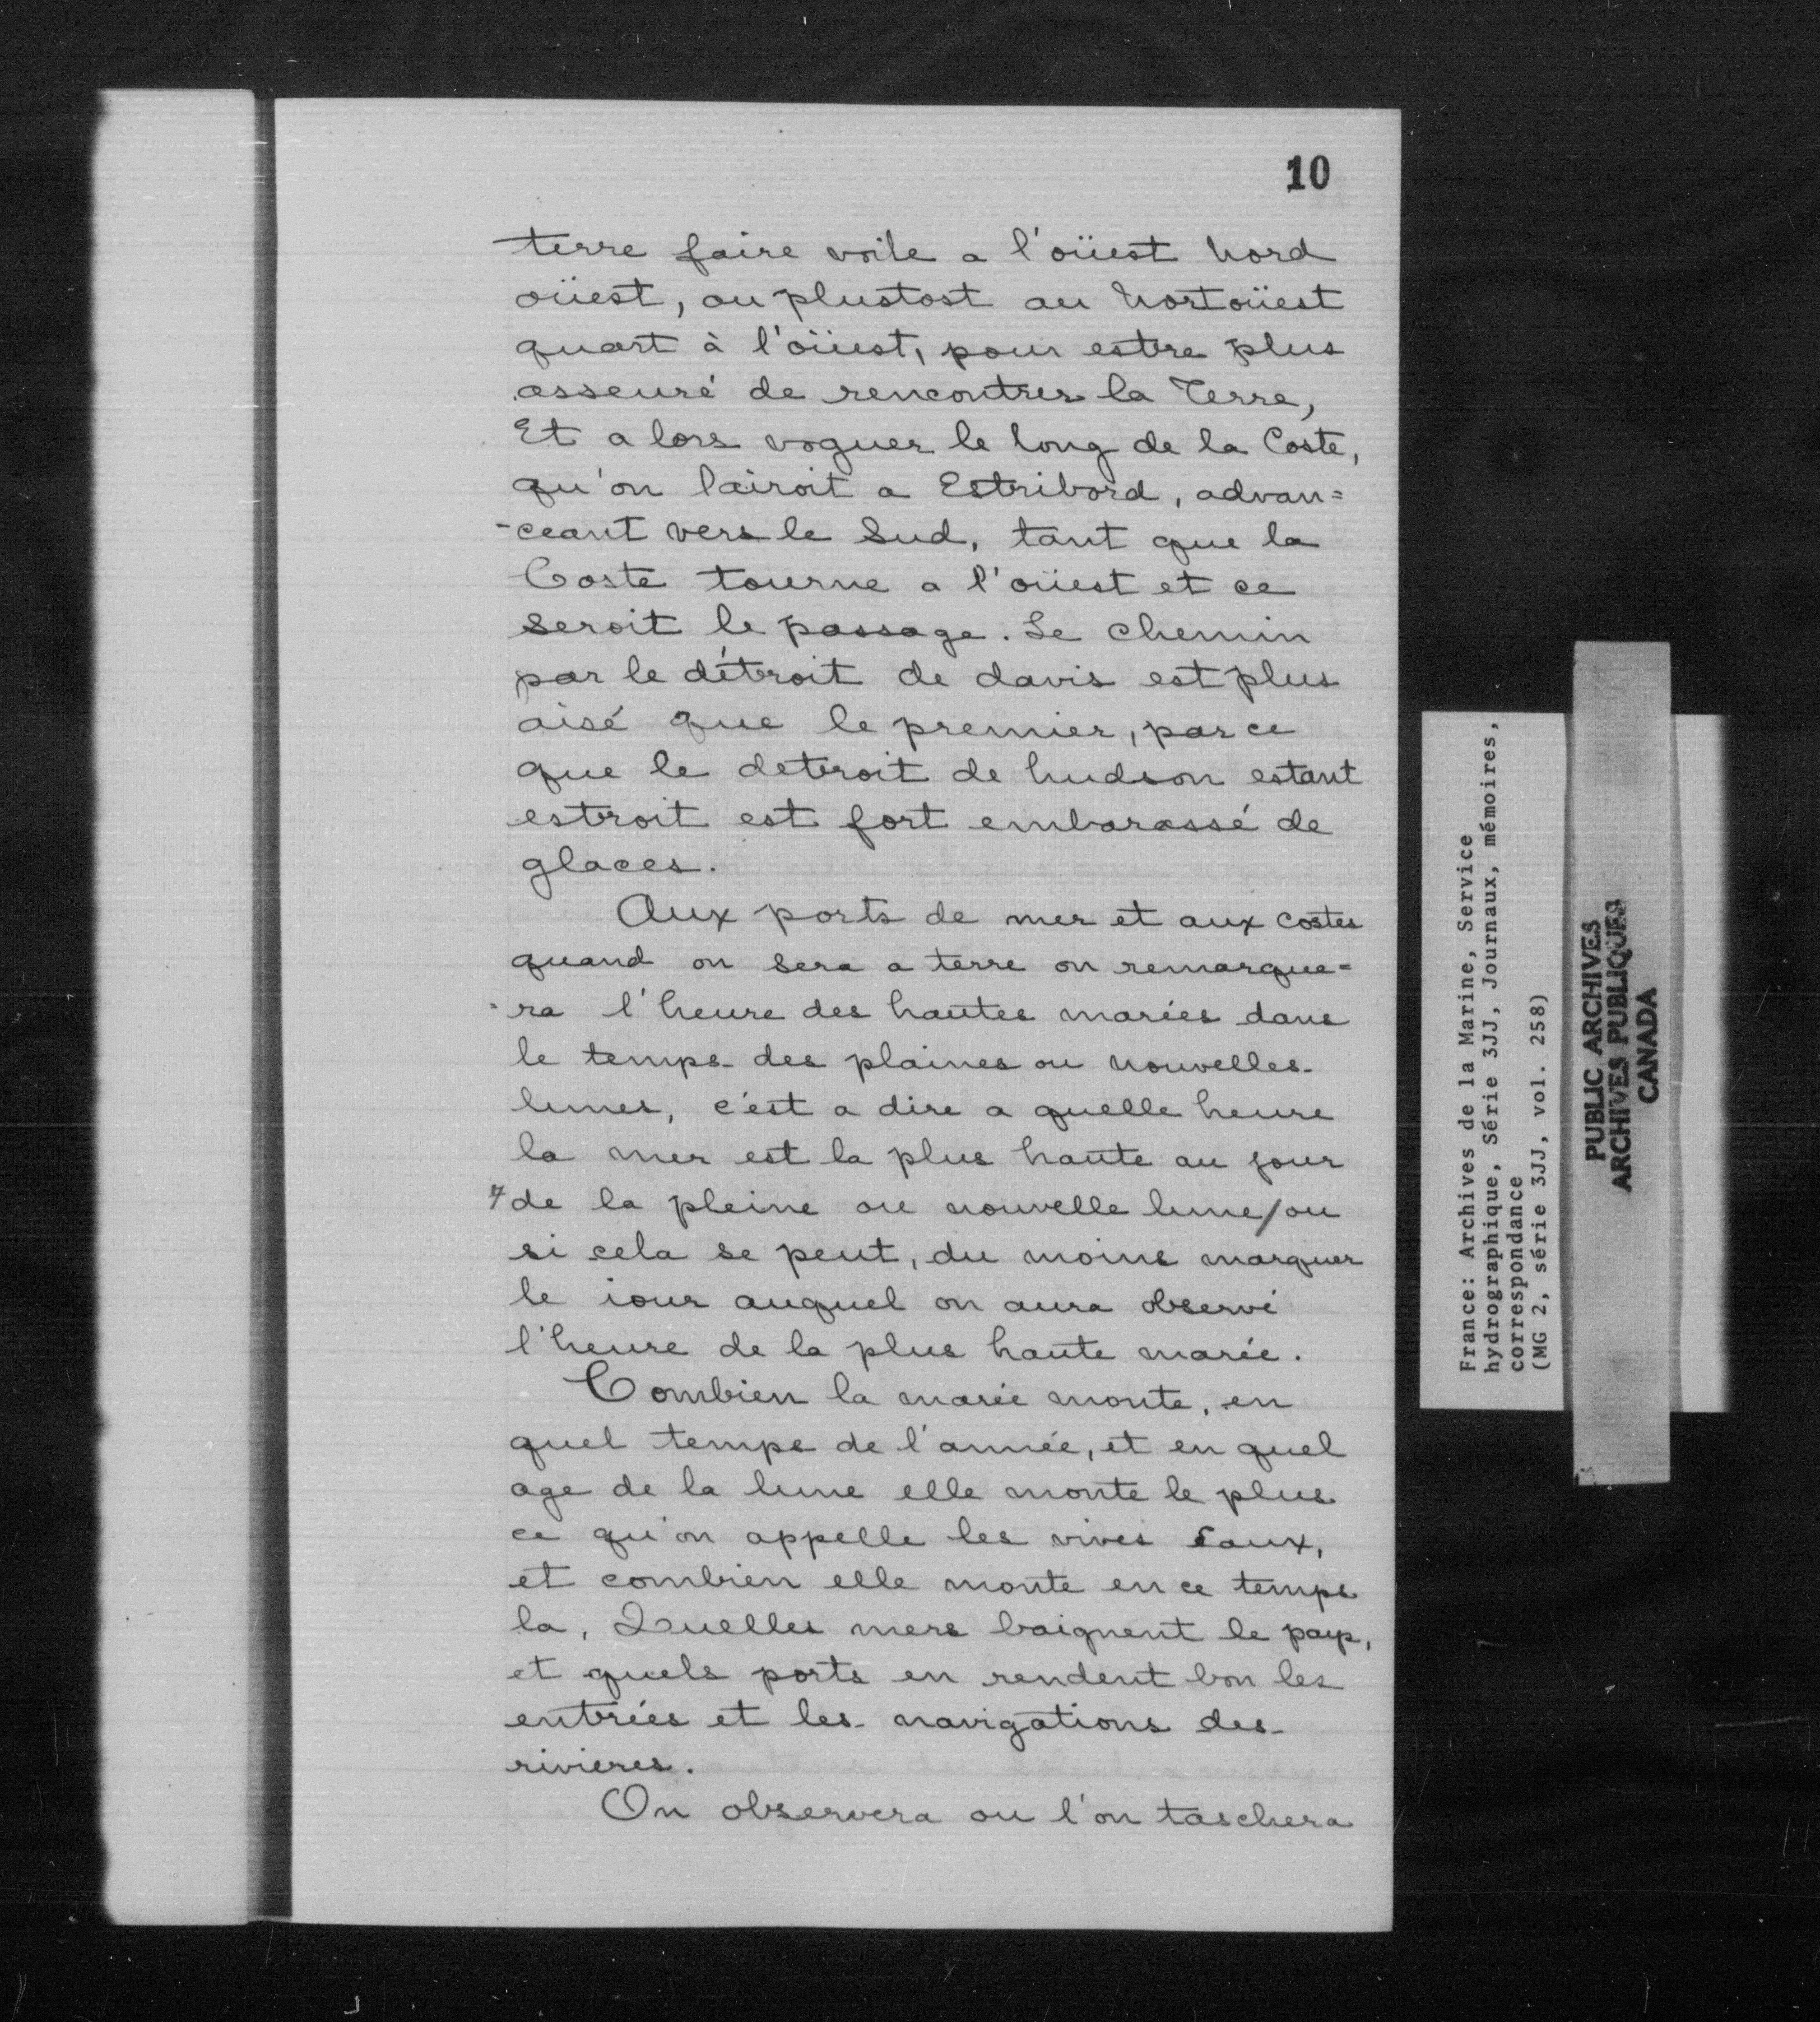 10
terre faire voile a l'oüest Nord
oüest, ou plustost au Nortoüest
quart à l'oüest, pour estre plus
asseuré de rencontrer la Terre,
Et a lors voguer le long de la Coste,
qu'on lairoit a Estribord, advan=
-ceant vers le Sud, tant que la
Coste tourne a l'oüest et ce
seroit le passage. Le chemin
par le détroit de davis est plus
aisé que le premier, par ce
que le detroit de hudson estant
estroit est fort embarassé de
glaces.
Aux ports de mer et aux costes
quand on sera a terre on remarque=
=ra l'heure des hautes marées dans
le temps des plaines ou nouvelles
lunes, c'est a dire a quelle heure
la mer est la plus haute au jour
de la pleine ou nouvelle lune/ou
si cela se peut, du moins marquer
le iour auquel on aura observé
l'heure de la plus haute marée.
Combien la marée monte, en
quel temps de l'année, et en quel
age de la lune elle monte le plus
ce qu'on appelle les vives Eaux,
et combien elle monte en ce temps
la, Quelles mers baignent le pays,
et quels ports en rendent bon les
entrées et les navigations des
rivieres.
On observera ou l'on taschera
France: Archives de la Marine, Service
hydrographique, Série 3JJ, Journaux, mémoires,
correspondance
(MG 2, série 3JJ, vol. 258)
PUBLIC ARCHIVES
ARCHIVES PUBLIQUES
CANADA